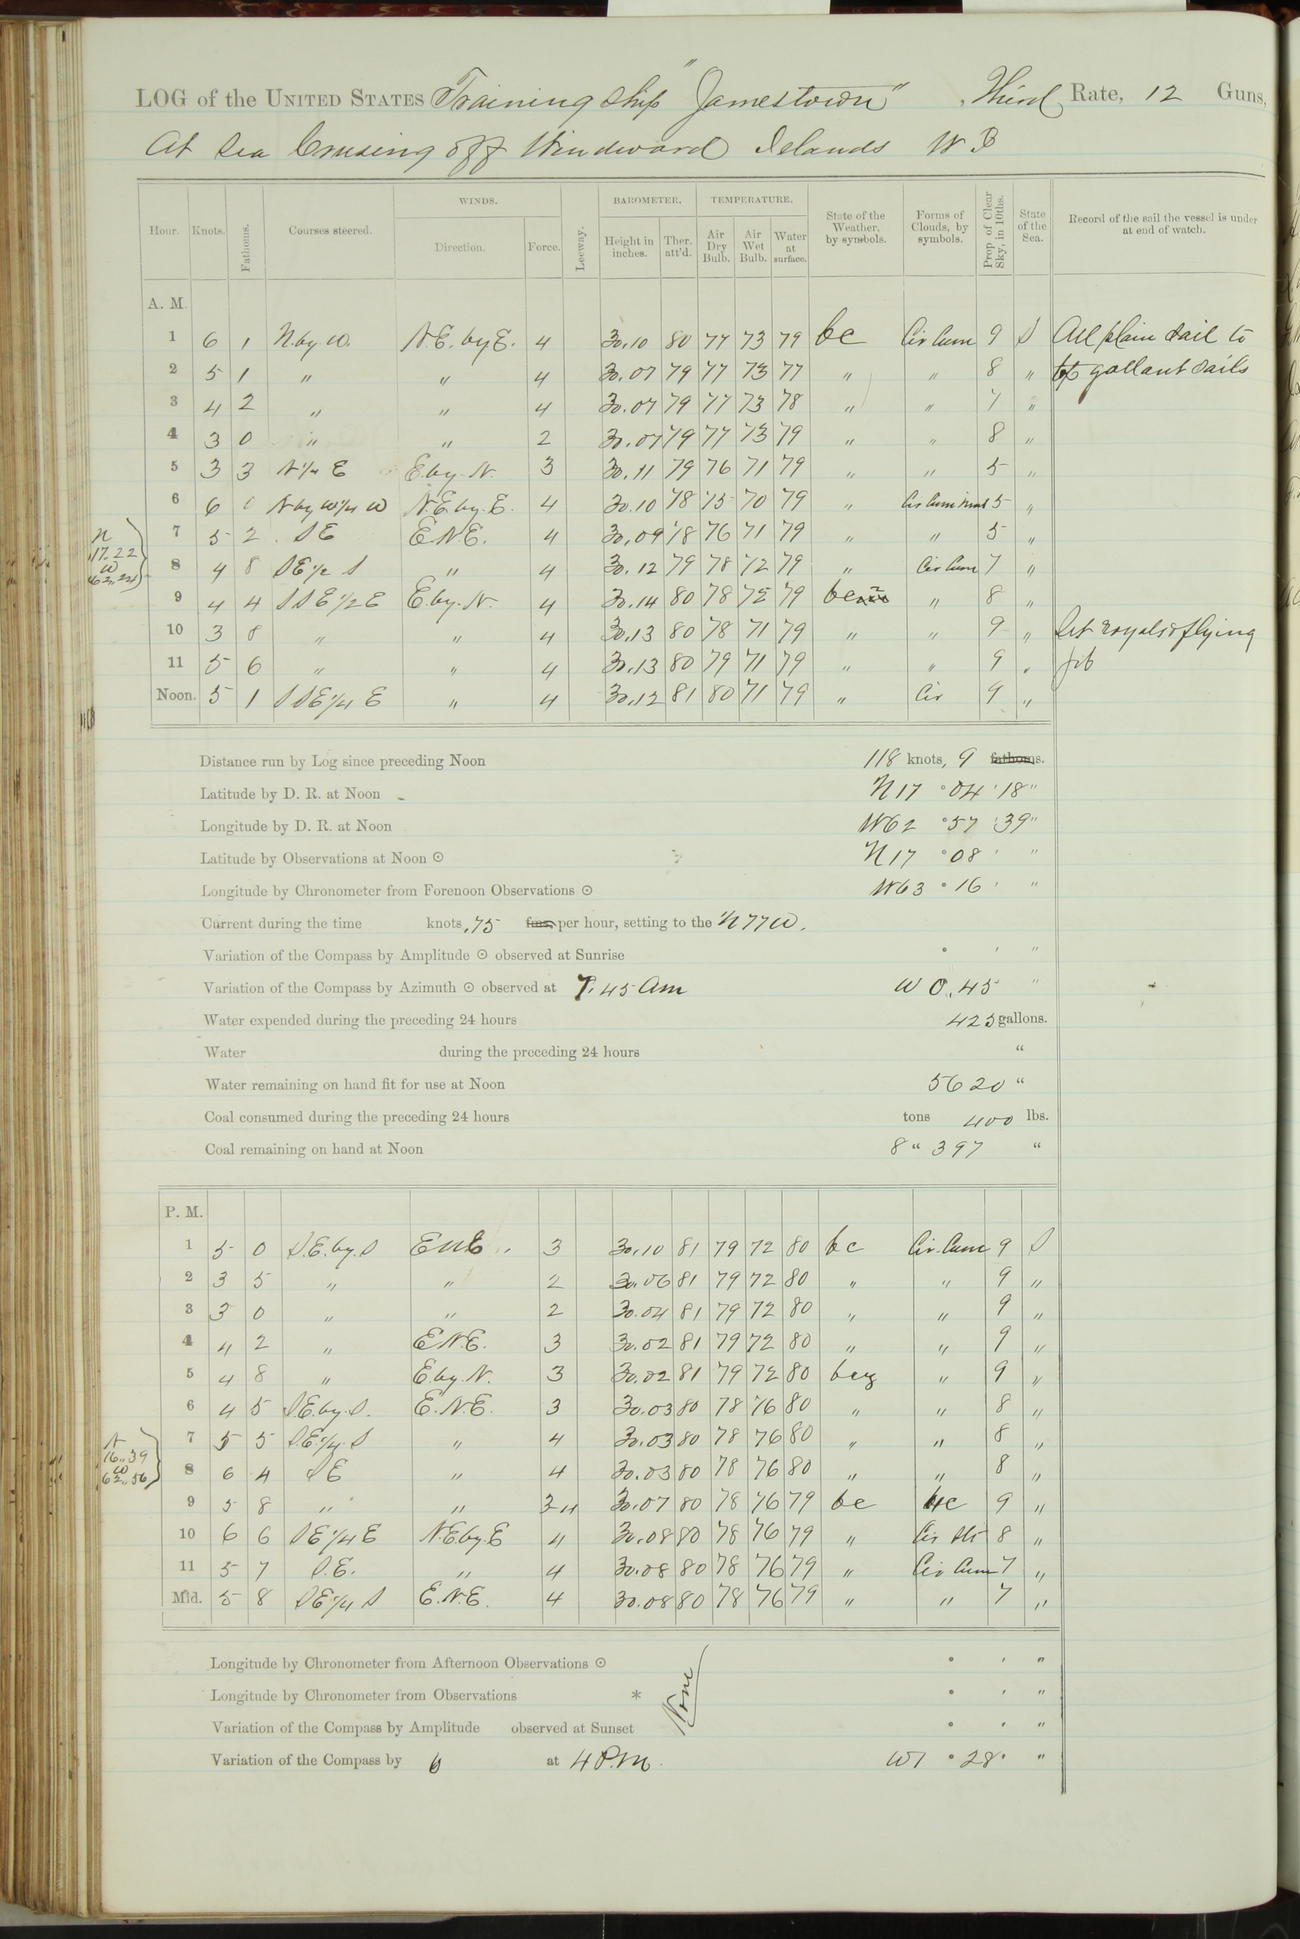 LOG of the UNITED STATES Training Ship "Jamestown", Third Rate, 12 Guns,
At Sea Cruising off Windward Islands W I
Hour. Knots. Fathoms. Courses steered. WINDS. Direction. Force. Leeway. BAROMETER. Height in inches. Ther. att'd. TEMPERATURE. Air Dry Bulb. Air Wet Bulb. Water at surface. State of the Weather, by symbols. Forms of Clouds, by symbols. Prop. of Clear Sky, in 10ths. State of the Sea. Record of the sail the vessel is under at end of watch.
A. M.
1 6 1 N. by W. N.E. by E. 4 30.10 80 77 73 79 bc Cir Cum 9 S All plain sail to
2 5 1 " " 4 30.07 79 77 73 77 " " 8 " top gallant sails
3 4 2 " " 4 30.07 79 77 73 78 " " 7 "
4 3 0 " " 2 30.07 79 77 73 79 " " 8 "
5 3 3 N 1/4 E E. by N. 3 30.11 79 76 71 79 " " 5 "
6 6 N by W 1/4 W N.E. by E. 4 30.10 78 75 70 79 " Cir Cum 5 "
N
17.22
W
62.24
7 5 2 S E E N E. 4 30.09 78 76 71 79 " " 5 "
8 4 8 S E 1/2 S " 4 30.12 79 78 72 79 " Cir Cum 7 "
9 4 4 S S E 1/2 E E. by N. 4 30.14 80 78 72 79 bc " 8 "
10 3 8 " " 4 30.13 80 78 71 79 " " 9 " Set royals & flying
11 5 6 " " 4 30.13 80 79 71 79 " " 9 " jib
Noon. 5 1 S S E 1/4 E " 4 30.12 81 80 71 79 " Cir 9 "
Distance run by Log since preceding Noon 118 knots, 9 fathoms.
Latitude by D. R. at Noon N 17 ° 04 ' 18 "
Longitude by D. R. at Noon W 62 ° 57 ' 39 "
Latitude by Observations at Noon ⊙ N 17 ° 08 ' "
Longitude by Chronometer from Forenoon Observations ⊙ W 63 ° 16 ' "
Current during the time knots .75 fms. per hour, setting to the N 77 W.
Variation of the Compass by Amplitude ⊙ observed at Sunrise ° ' "
Variation of the Compass by Azimuth ⊙ observed at 7.45 am W 0.. 45 "
Water expended during the preceding 24 hours 425 gallons.
Water during the preceding 24 hours "
Water remaining on hand fit for use at Noon 5620 "
Coal consumed during the preceding 24 hours tons 400 lbs.
Coal remaining on hand at Noon 8 " 397 "
P. M.
1 5 0 S.E. by S E N E.. 3 30.10 81 79 72 80 bc Cir. Cum 9 S
2 3 5 " " 2 30.06 81 79 72 80 " " 9 "
3 3 0 " " 2 30.04 81 79 72 80 " " 9 "
4 4 2 " E N E. 3 30.02 81 79 72 80 " " 9 "
5 4 8 " E. by N. 3 30.02 81 79 72 80 " 9 "
6 4 5 S E. by S. E. N. E. 3 30.03 80 78 76 80 " " 8 "
N
16..39
W
62..56
7 5 5 S. E. 1/4 S " 4 30.03 80 78 76 80 " " 8 "
8 6 4 S E " 4 30.03 80 78 76 80 " " 8 "
9 5 8 " " 3-4 30.07 80 78 76 79 bc 9 "
10 6 6 S E 1/4 E N.E by E 4 30.08 80 78 76 79 " Cir Str 8 "
11 5 7 S. E. " 4 30.08 80 78 76 79 " Cir Cum 7 "
Mid. 5 8 S E 1/4 S E. N. E. 4 30.08 80 78 76 79 " " 7 "
Longitude by Chronometer from Afternoon Observations ⊙ ° ' "
Longitude by Chronometer from Observations * None ° ' "
Variation of the Compass by Amplitude observed at Sunset ° ' "
Variation of the Compass by at 4 P.M. W 1 ° 28 ' "